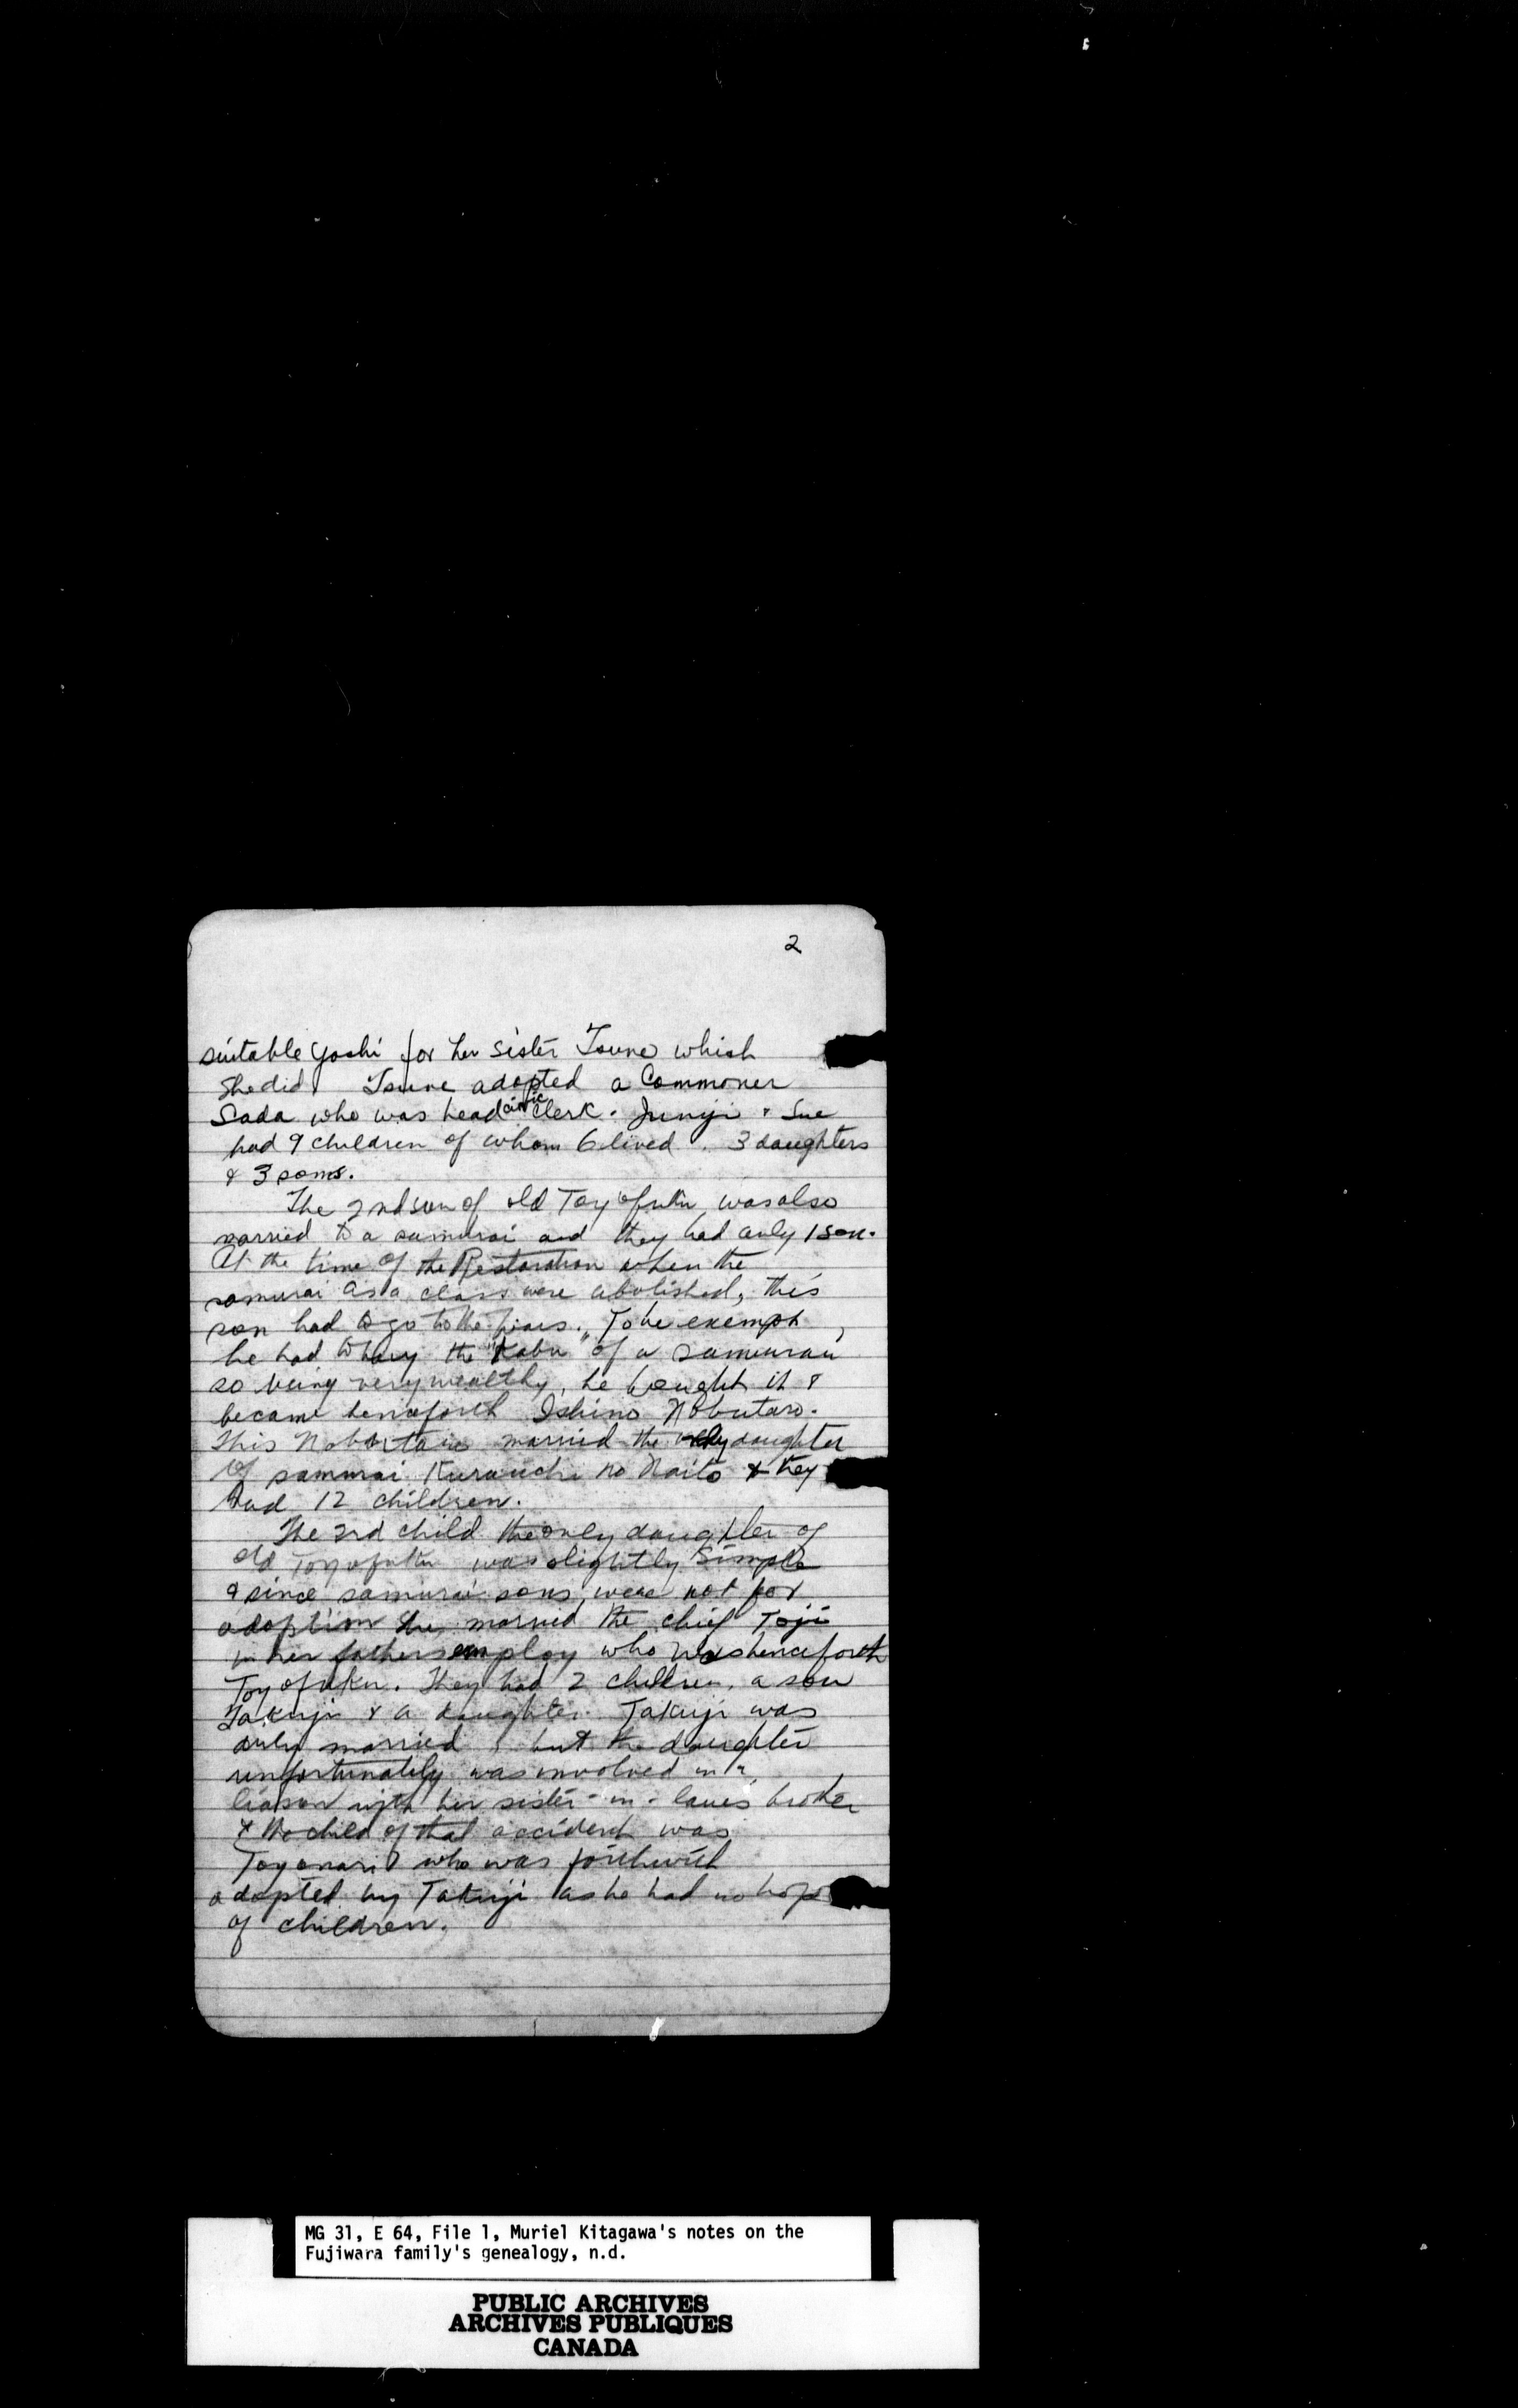 2
suitable yoshi for her sister Tsune which
she did. Tsune adopted a Commoner
Sada who was head civic clerk. Junji & Sue
had 9 children of whom 6 lived. 3 daughters
& 3 sons.
The 2nd son of old Toyofuku was also
married to a samurai and they had only 1 son.
At the time of the Restoration when the
samurai as a class were abolished, this
son had to go to the wars. To be exempt,
he had to buy the "Kabu" of a samurai
so being very wealthy, he bought it &
became henceforth Ishino Nobutaro.
This Nobutaro married the only daughter
of samurai Kurauchi no Naito & they
had 12 children.
The 3rd child the only daughter of
old Toyofuku was slightly simple
& since samurai sons were not for
adoption she married the chief Toji
in her fathers employ who was henceforth
Toyofuku. They had 2 children, a son
Takuji & a daughter. Takuji was
duly married, but the daughter
unfortunately was involved in a
liason with her sister-in-law's brother
& the child of that accident was
Toyonari who was forthwith
adopted by Takuji as he had no hope
of children.
MG 31, E 64, File 1, Muriel Kitagawa's notes on the
Fujiwara family's genealogy, n.d.
PUBLIC ARCHIVES
ARCHIVES PUBLIQUES
CANADA